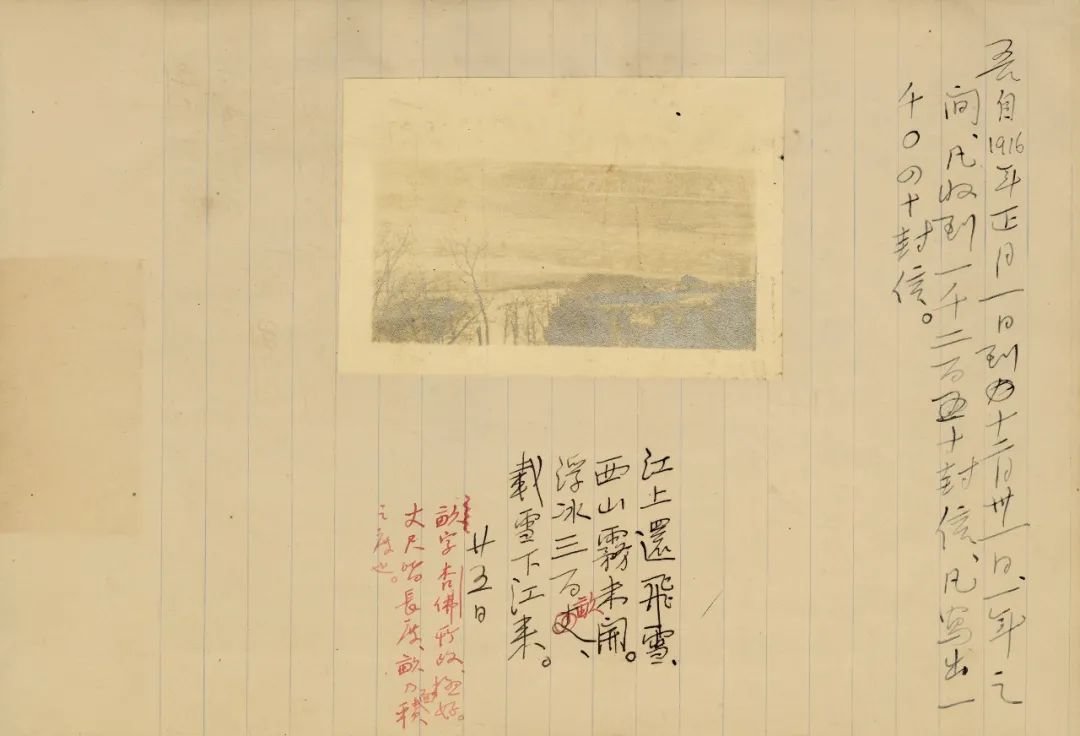 吾自1916年正月一日到十二月卅一日、一年之
間、凡收到一千二百五十封信、凡寫出一
千〇四十封信。
江上還飛雪、
西山霧未開。
浮冰三百畝、
載雪下江来。
廿五日
畝字杏佛所改、極好。
丈尺皆長度、畝乃面積
之度也。